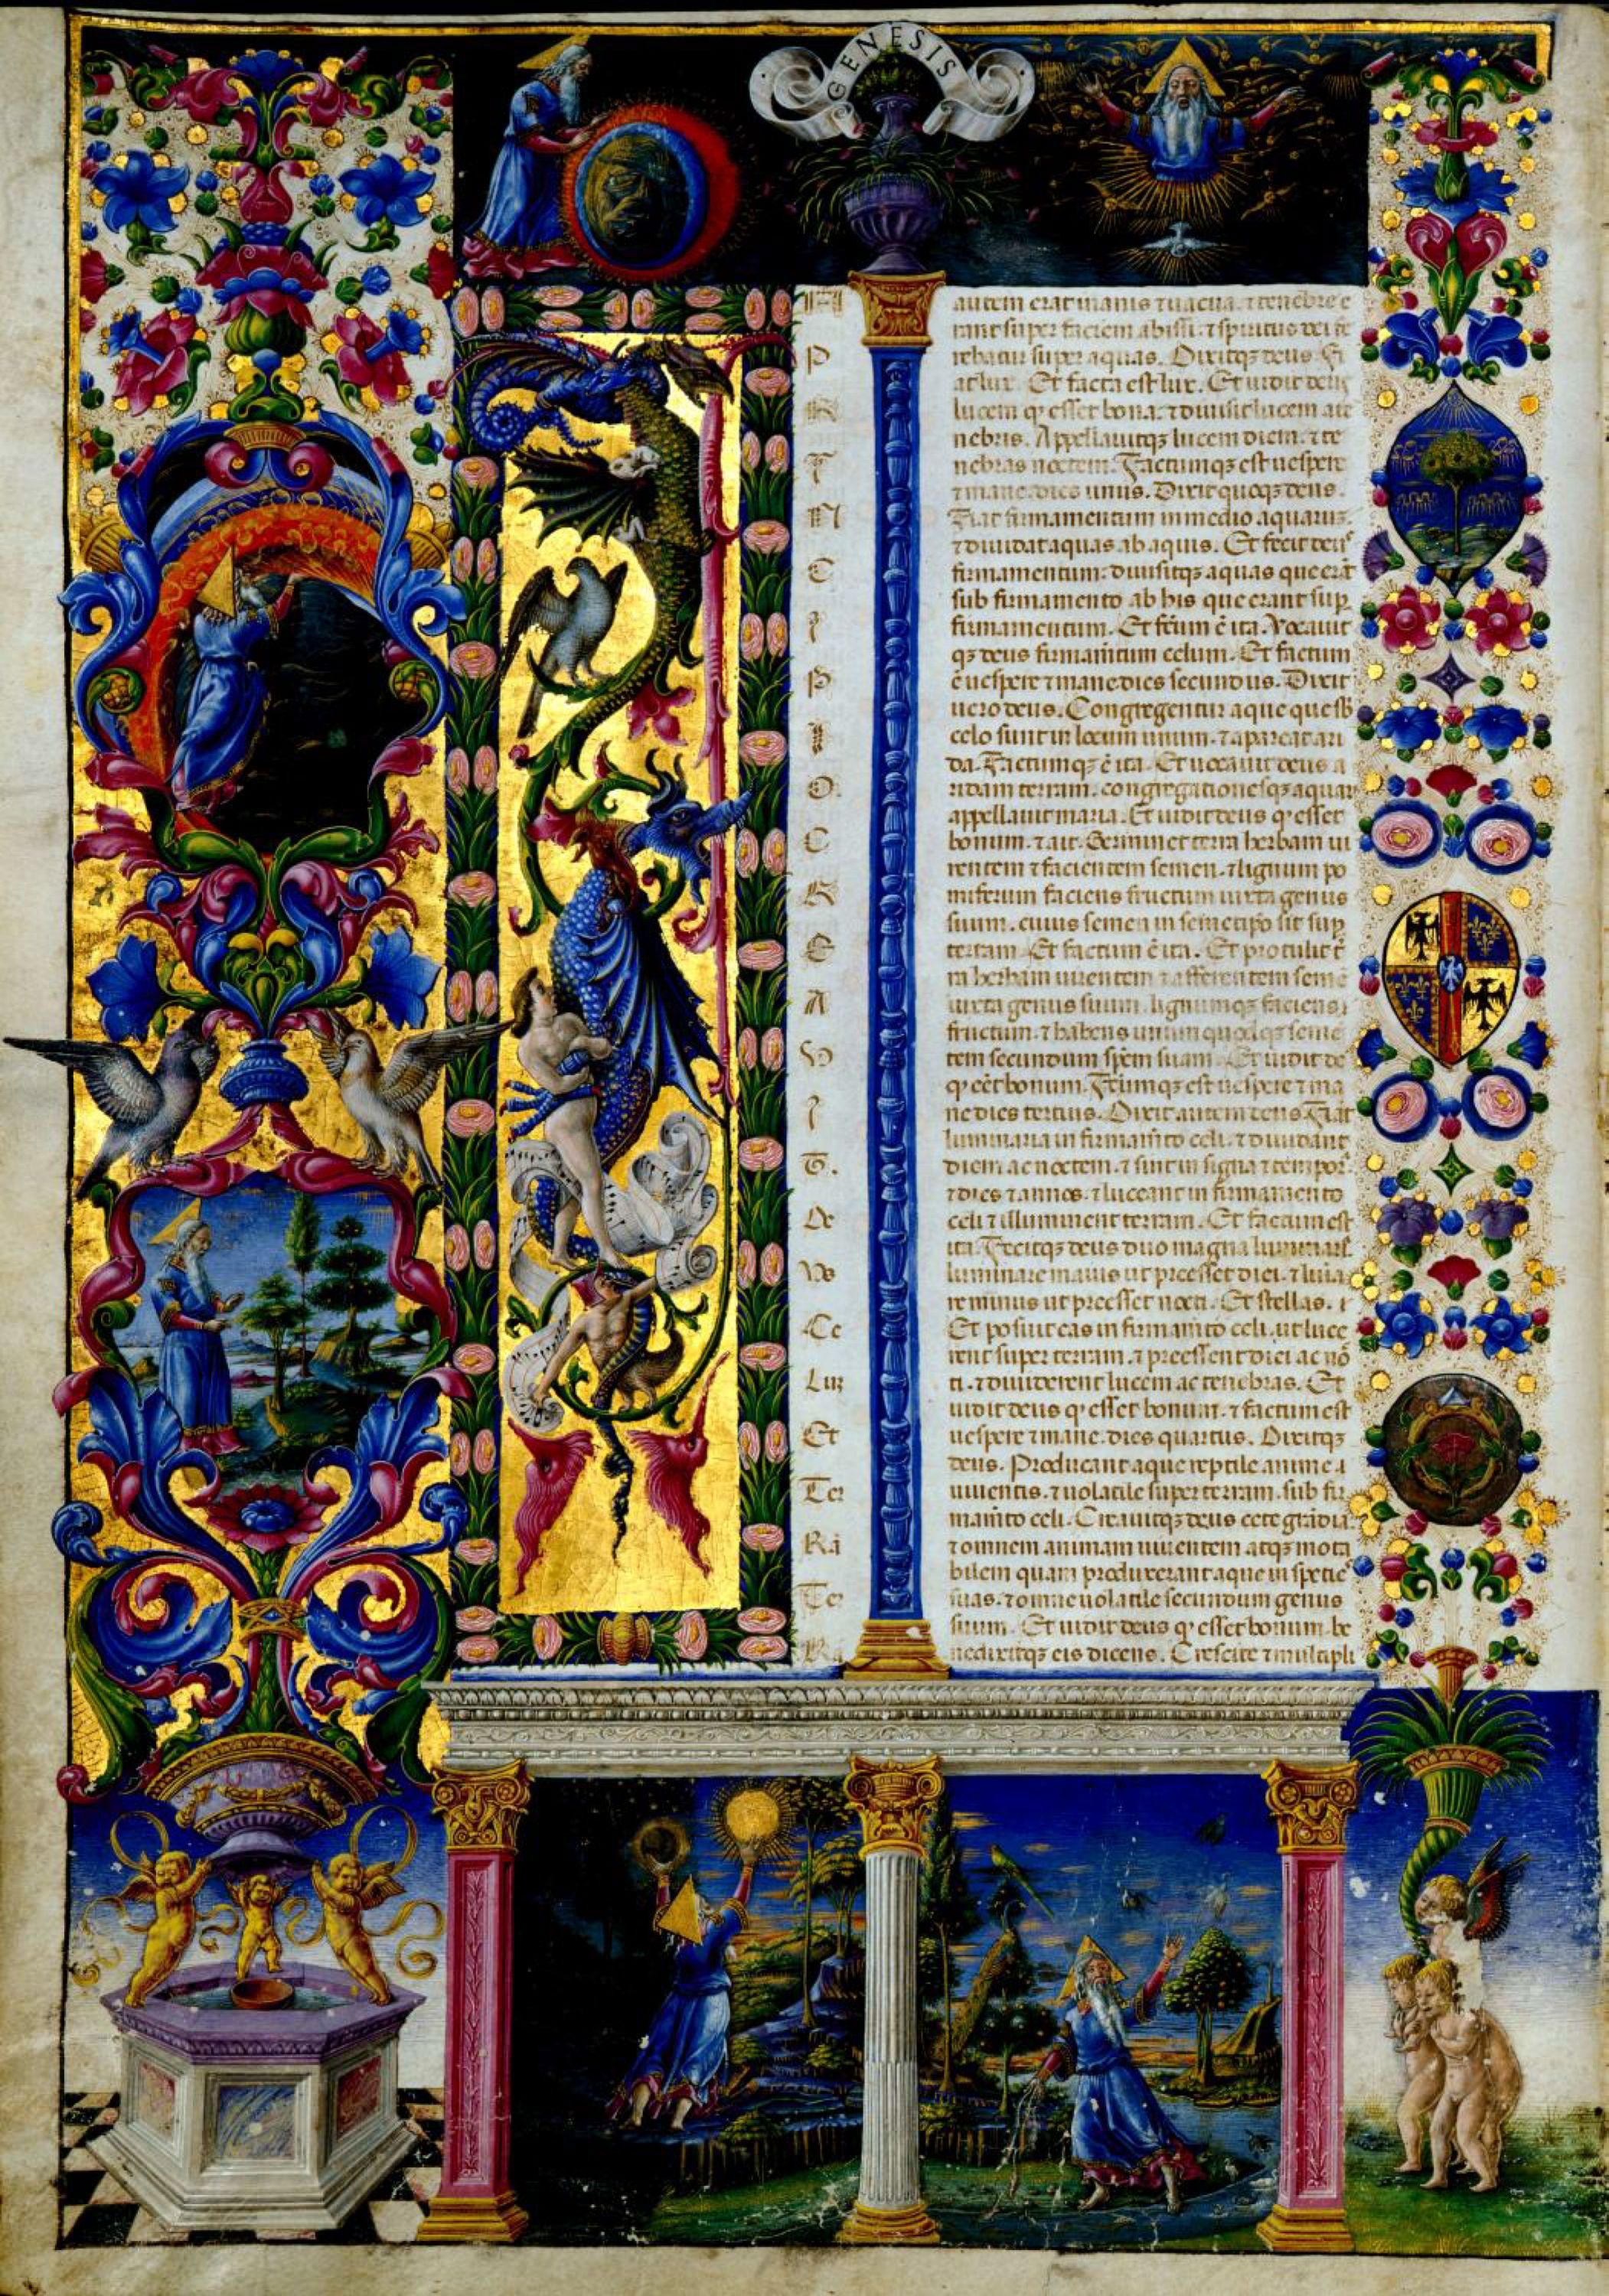 GENESIS
N
P
R
I
N
C
I
P
I
O.
C
R
E
A
V
I
T.
De
Vs
Ce
Luꝫ
Et
Ter
Rā
Ter
Ra
autem erat inanis ⁊ uacua. ⁊ tenebre e
rant super faciem abissi. ⁊ spiritus dei fe
rebatur super aquas. Dixitqꝫ deus. Fi
at lux. Et facta est lux. Et uidit deus
lucem ꝙ esset bona. ⁊ diuisit lucem a te
nebris. Appellauitqꝫ lucem diem. ⁊ te
nebras noctem. Factumqꝫ est uespere
⁊ mane dies unus. Dixit quoqꝫ deus.
Fiat firmamentum in medio aquarū.
⁊ diuidat aquas ab aquis. Et fecit deus
firmamentum. diuisitqꝫ aquas que erāt
sub firmamento ab his que erant sup
firmamentum. Et fcūm ē ita. Vocauit
qꝫ deus firmam̄tum celum. Et factum
ē uespere ⁊ mane dies secundus. Dixit
uero deus. Congregentur aque que sb
celo sunt in locum unum. ⁊ apareat ari
da. Factumqꝫ ē ita. Et uocauit deus a
ridam terram. congregationesqꝫ aquaꝝ
appellauit maria. Et uidit deus ꝙ esset
bonum. ⁊ ait. Germinet terra herbam ui
rentem ⁊ facientem semen. ⁊ lignum po
miferum faciens fructum iuxta genus
suum. cuius semen in semetip̄o sit sup
terram. Et factum ē ita. Et protulit t̄
ra herbam uirentem ⁊ afferentem semē
iuxta genus suum. lignumqꝫ faciens
fructum. ⁊ habens unumquodqꝫ seme
tem secundum sp̄em suam. Et uidit de
ꝙ eēt bonum. Fcūmqꝫ est uespere ⁊ ma
ne dies tertius. Dixit autem deus. Fiāt
luminaria in firmam̄to celi. ⁊ diuidant
diem ac noctem. ⁊ sint in signa ⁊ tempor̄.
⁊ dies ⁊ annos. ⁊ luceant in firmamento
celi ⁊ illuminent terram. Et factum est
ita. Fecitqꝫ deus duo magna luminaria.
luminare maius ut preesset diei. ⁊ lūia
re minus ut preesset nocti. Et stellas. ⁊
Et posuit eas in firmam̄to celi. ut luce
rent super terram. ⁊ preessent diei ac no
cti. ⁊ diuiderent lucem ac tenebras. Et
uidit deus ꝙ esset bonum. ⁊ factum est
uespere ⁊ mane. dies quartus. Dixitqꝫ
deus. Producant aque reptile anime
uiuentis. ⁊ uolatile super terram. sub fir
mam̄to celi. Creauitqꝫ deus cete grādia.
⁊ omnem animam uiuentem atqꝫ mota
bilem quam produxerant aque in spetie
suas. ⁊ omne uolatile secundum genus
suum. Et uidit deus ꝙ esset bonum. be
nedixitqꝫ eis dicens. Crescite ⁊ multipli